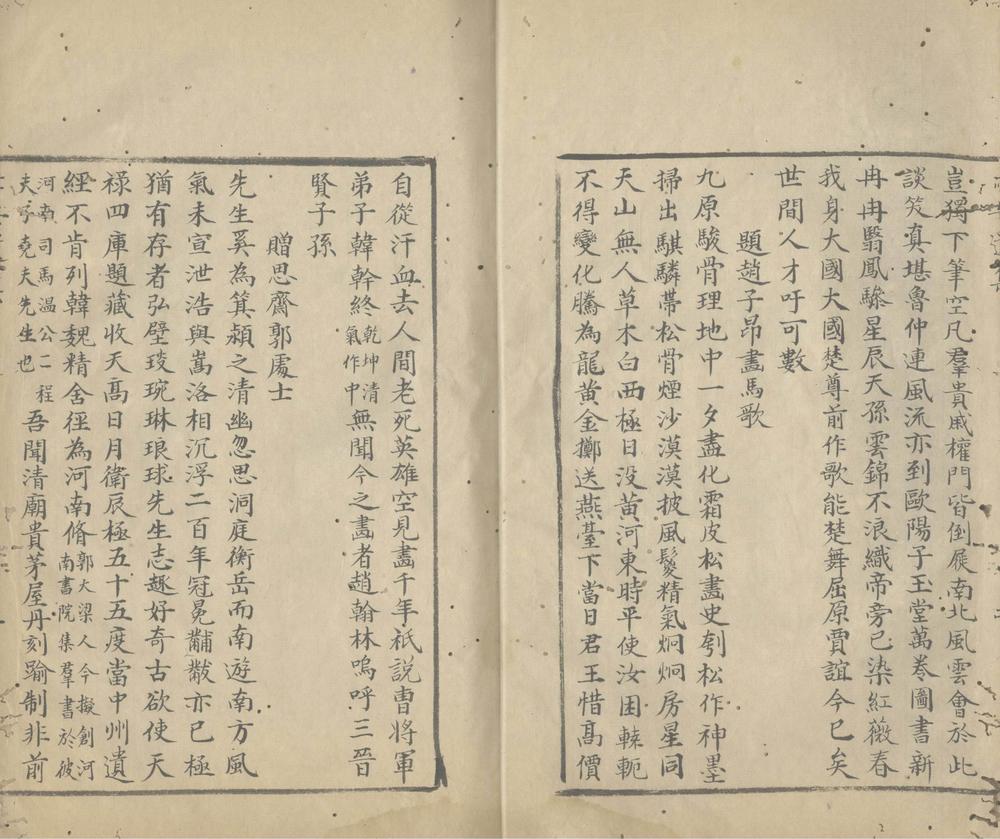 豈獨下筆空凡羣貴戚權門皆倒屐南北風雲會於此
談笑真堪魯仲連風流亦到歐陽子玉堂萬卷圖書新
冉冉翳鳳驂星辰天孫雲錦不浪織帝旁已染紅薇春
我身大國大國楚尊前作歌能楚舞屈原賈誼今已矣
世間人才吁可數
題趙子昂畫馬歌
九原駿骨理地中一夕盡化霜皮松畫史刳松作神墨
掃出騏驎帶松骨煙沙漠漠披風鬉精氣炯炯房星同
天山無人草木白西極日没黄河東時平使汝困轅軛
不得變化騰為龍黄金擲送燕臺下當日君王惜髙價
自從汗血去人間老死英雄空見畫千年祇説曹將軍
弟子韓幹終乾坤清氣作中無聞今之畫者趙翰林嗚呼三晉
賢子孫
贈思齋郭處士
先生奚為箕潁之清幽忽思洞庭衡岳而南遊南方風
氣未宣泄浩與嵩洛相沉浮二百年冠冕黼黻亦已極
猶有存者弘璧琰琬琳琅球先生志趣好奇古欲使天
祿四庫題藏收天髙日月衛辰極五十五度當中州遺
經不肯列韓魏精舍徑為河南脩郭大梁人今擬創河南書院集羣書於彼
河南司馬温公二程夫子堯夫先生也吾聞清廟貴茅屋丹刻踰制非前